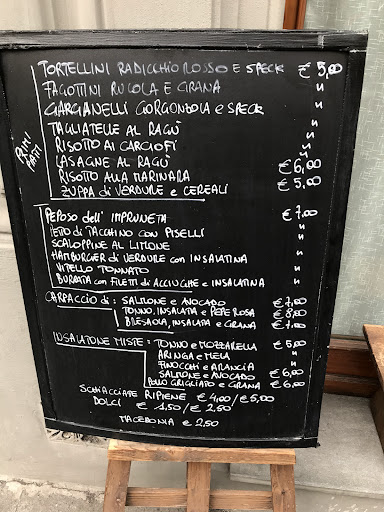 TORTELLINI RADICCHIO ROSSO E SPECK € 5,00
FAGOTTINI RUCOLA E GRANA "
GARGANELLI GORGONZOLA e SPECK "
TAGLIATELLE AL RAGÙ "
RISOTTO AI CARCIOFI "
LASAGNE AL RAGÙ € 6,00
RISOTTO ALLA MARINARA € 5,00
ZUPPA di VERDURE e CEREALI "
PRIMI PIATTI
PEPOSO dell' IMPRUNETA € 7,00
PETTO di TACCHINO CON PISELLI "
SCALOPPINE AL LIMONE "
HAMBURGER di VERDURE con INSALATINA "
VITELLO TONNATO "
BURRATA con FILETTI di ACCIUGHE e INSALATINA "
CARPACCIO di: SALMONE e AVOCADO € 7,00
TONNO, INSALATA e PEPE ROSA € 8,00
BRESAOLA, INSALATA e GRANA € 7,00
INSALATONE MISTE: TONNO e MOZZARELLA € 5,00
ARINGA e MELA "
FINOCCHI e ARANCIA "
SALMONE e AVOCADO € 6,00
POLLO GRIGLIATO e GRANA € 6,00
SCHIACCIATE RIPIENE € 4,00/€ 5,00
DOLCI € 1,50/€ 2,50
MACEDONIA € 2,50